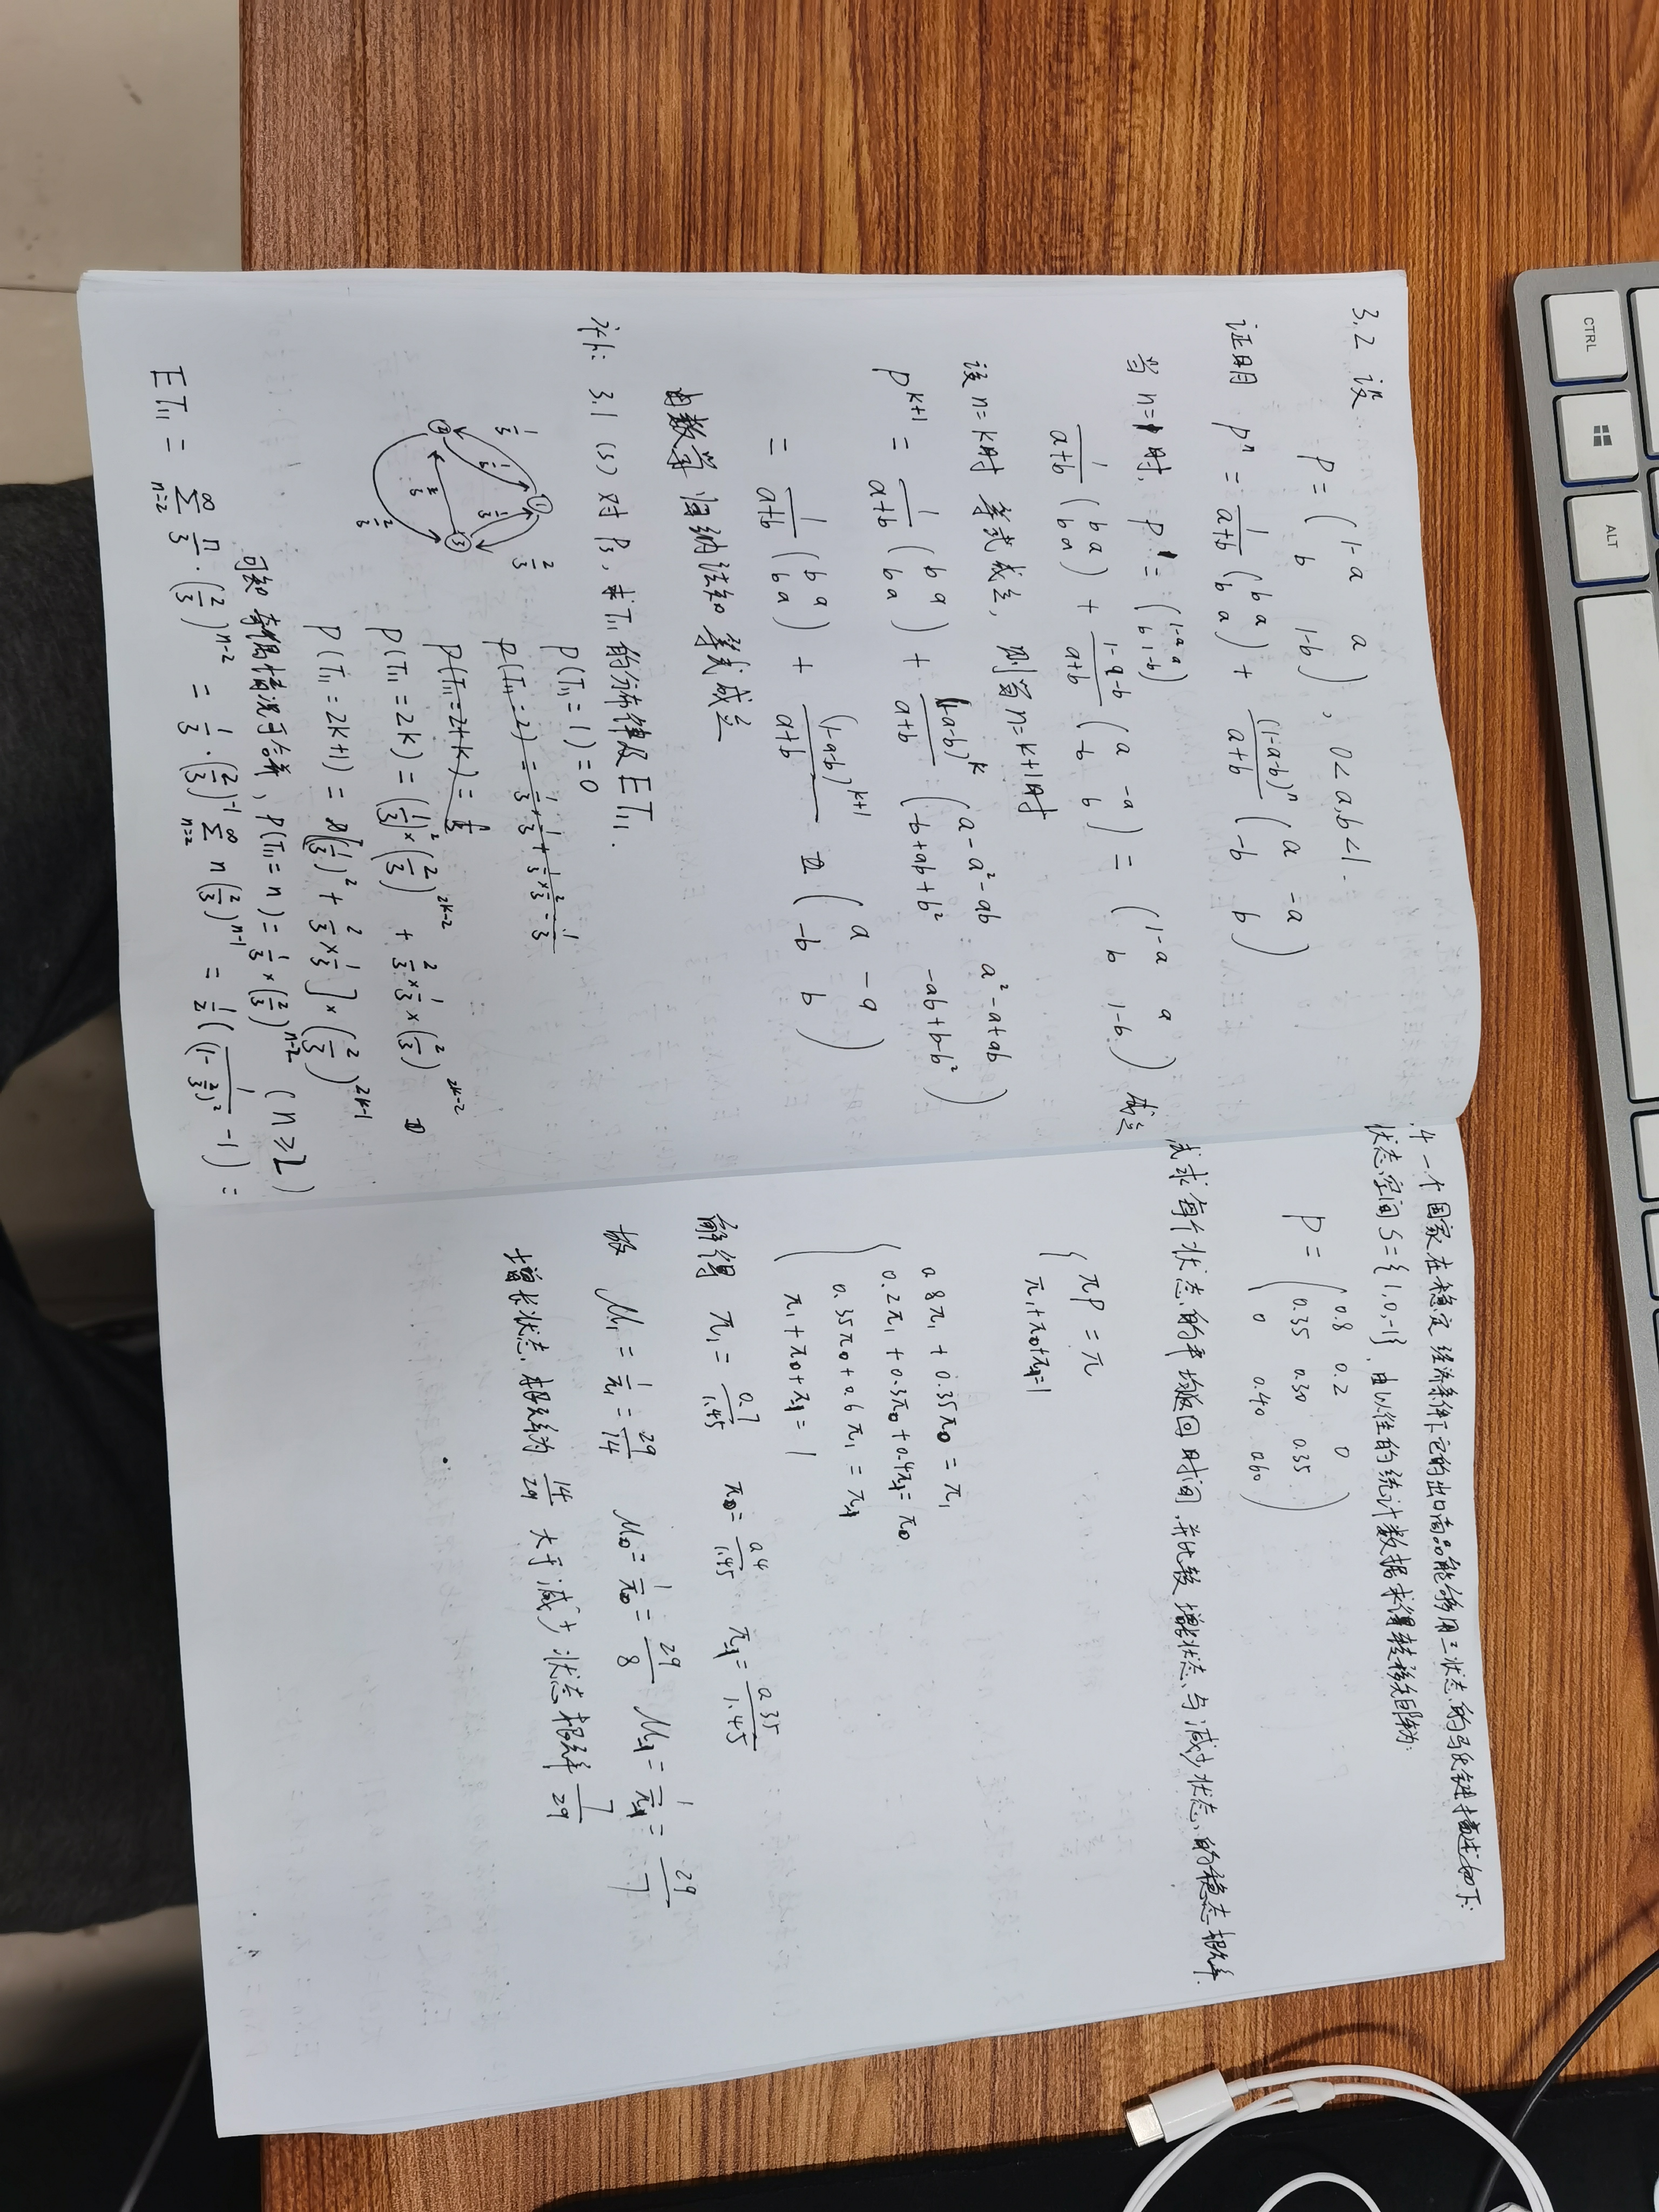 3.2 设 P = ( 1-a a
b 1-b ) , 0<a,b<1.
证明 Pⁿ = 1/(a+b) ( b a
b a ) + (1-a-b)ⁿ/(a+b) ( a -a
-b b )
当 n=1时, P¹ = ( 1-a a
b 1-b )
1/(a+b) ( b a
b a ) + (1-a-b)/(a+b) ( a -a
-b b ) = ( 1-a a
b 1-b ) 成立
设 n=k时 等式成立, 则当 n=k+1时
P^(k+1) = 1/(a+b) ( b a
b a ) + (1-a-b)^k/(a+b) ( a-a²-ab a²-a+ab
-b+ab+b² -ab+b-b² )
= 1/(a+b) ( b a
b a ) + (1-a-b)^(k+1)/(a+b) ( a -a
-b b )
由数学归纳法知 等式成立
补: 3.1 (5) 对 P₃, 求T₁₁的分布律及ET₁₁.
1/3 1 2/3
1/3 1/3
2 2/3 3
2/3
P(T₁₁=1)=0
P(T₁₁=2) = 1/3×1/3+2/3×1/3=1/3
P(T₁₁=2+k) = 1/3
P(T₁₁=2k) = (1/3)²×(2/3)^(2k-2) + 2/3×1/3×(2/3)^(2k-2)
P(T₁₁=2k+1) = [(1/3)²+2/3×1/3]×(2/3)^(2k-1)
可知 奇偶情况可合并, P(T₁₁=n)=1/3×(2/3)^(n-2) (n≥2)
ET₁₁ = ∑_(n=2)^∞ n/3·(2/3)^(n-2) = 1/3·(2/3)^(-1) ∑_(n=2)^∞ n(2/3)^(n-1) = 1/2(1/(1-2/3)²-1) =
.4 一个国家在稳定经济条件下它的出口商品能够用三状态的马氏链描述如下:
状态空间 S={1,0,-1}, 由以往的统计数据求得转移矩阵为:
P = ( 0.8 0.2 0
0.35 0.30 0.35
0 0.40 0.60 )
试求每个状态的平均返回时间,并比较增长状态与减少状态的稳态概率.
{ πP=π
π₁+π₀+π₋₁=1
{ 0.8π₁+0.35π₀=π₁
0.2π₁+0.3π₀+0.4π₋₁=π₀
0.35π₀+0.6π₁=π₋₁
π₁+π₀+π₋₁=1
解得 π₁=0.7/1.45 π₀=0.4/1.45 π₋₁=0.35/1.45
故 μ₁=1/π₁=29/14 μ₀=1/π₀=29/8 μ₋₁=1/π₋₁=29/7
增长状态概率为 14/29 大于减少状态概率 7/29
CTRL
ALT